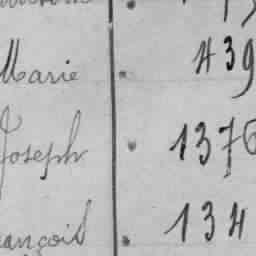 Marie 439
Joseph 1376
ançois 134